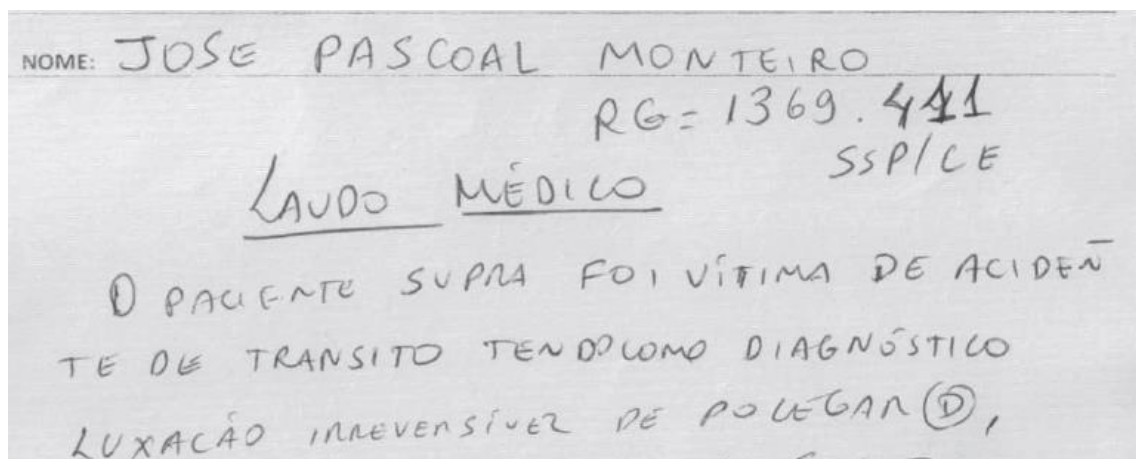 NOME: JOSE PASCOAL MONTEIRO
RG= 1369.411
SSP/CE
LAUDO MÉDICO
O PACIENTE SUPRA FOI VÍTIMA DE ACIDEN
TE DE TRANSITO TENDO COMO DIAGNÓSTICO
LUXAÇÃO IRREVERSÍVEL DE POLEGAR (D),